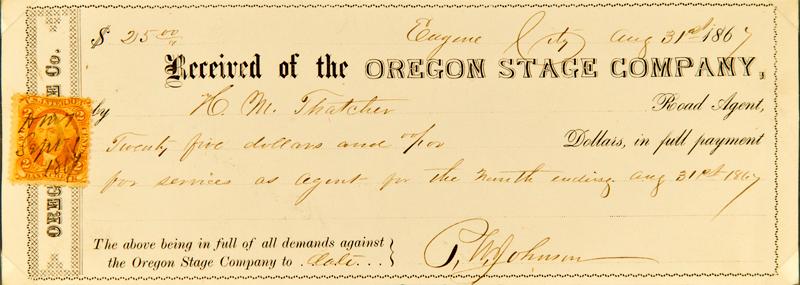 $ 25 00/" Eugene City Aug 31st 1867
Received of the OREGON STAGE COMPANY,
by H. M. Thatcher Road Agent,
Twenty five dollars and 00/00 Dollars, in full payment
for services as Agent for the Month ending Aug 31st 1867
The above being in full of all demands against
the Oregon Stage Company to date
Johnson
OREGON Co.
U.S. INTER. REV.
2 2
Sept 1
1867